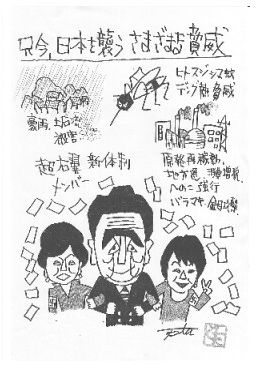 只今、日本を襲うさまざまな脅威
ヒトスジシマ蚊
デング熱脅威
豪雨、土石流
被害
超右翼 新体制
メンバー
原発再稼動、
地方へ
強行
バラマキ